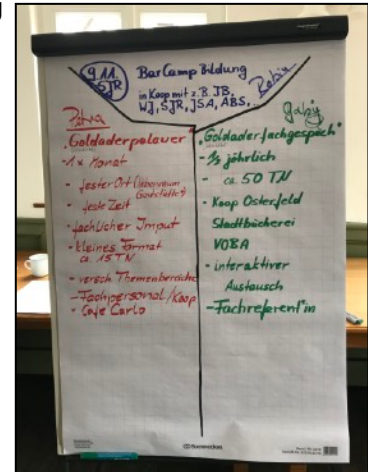 9.11.
SJR
BarCamp Bildung
in Koop mit z.B. JB,
WJ, SJR, JSA, ABS, ..
Petra
"Goldaderpalaver
- 1x Monat
- fester Ort
- feste Zeit
- fachlicher Input
- kleines Format
ca. 15 TN
- versch. Themenbereiche
- Fachpersonal / Koop
- Cafe Carlo
Gaby
"Goldaderfachgespäch"
jährlich
- ca. 50 TN
- Koop Osterfeld
Stadtbücherei
VOBA
- interaktiver
Austausch
- Fachreferent*in